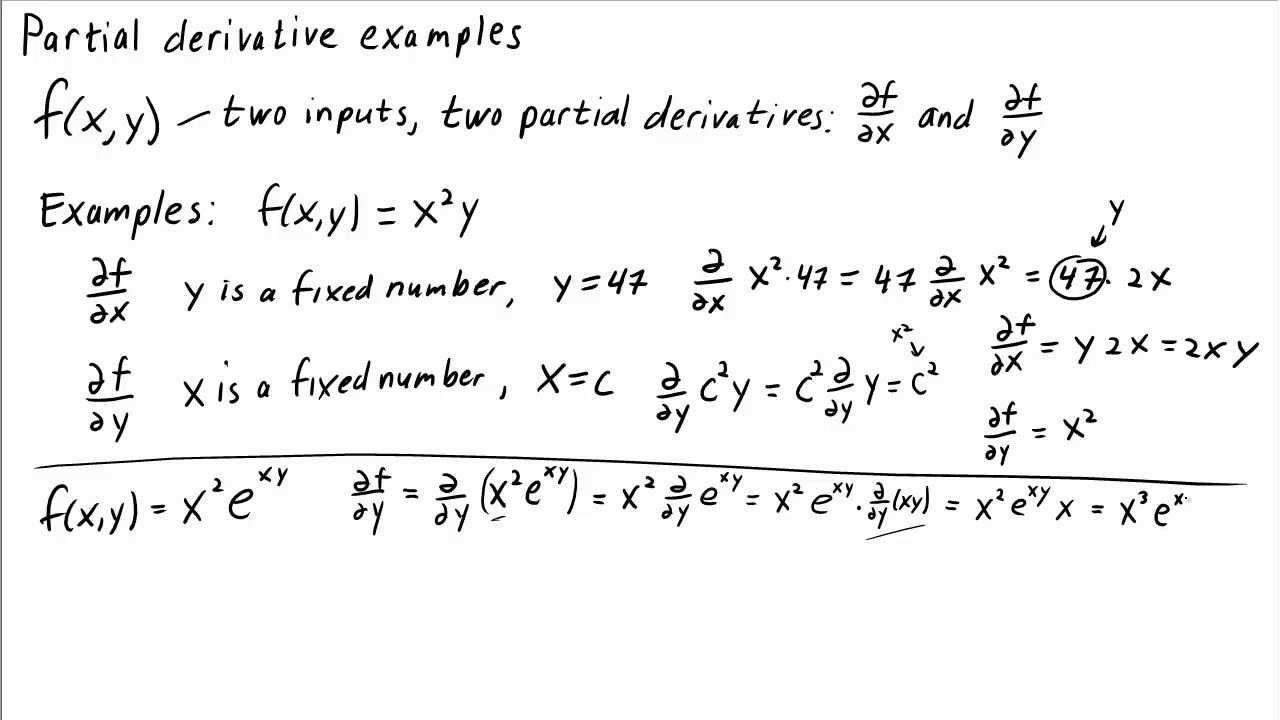 Partial derivative examples
f(x,y) – two inputs, two partial derivatives: ∂f/∂x and ∂f/∂y
Examples: f(x,y) = x²y
y
∂f/∂x y is a fixed number, y=47 ∂/∂x x²·47 = 47 ∂/∂x x² = 47·2x
∂f/∂x = y2x = 2xy
x²
∂f/∂y x is a fixed number, x=c ∂/∂y c²y = c² ∂/∂y y = c²
∂f/∂y = x²
f(x,y) = x²e^xy ∂f/∂y = ∂/∂y (x²e^xy) = x² ∂/∂y e^xy = x²e^xy · ∂/∂y (xy) = x²e^xy x = x³e^x